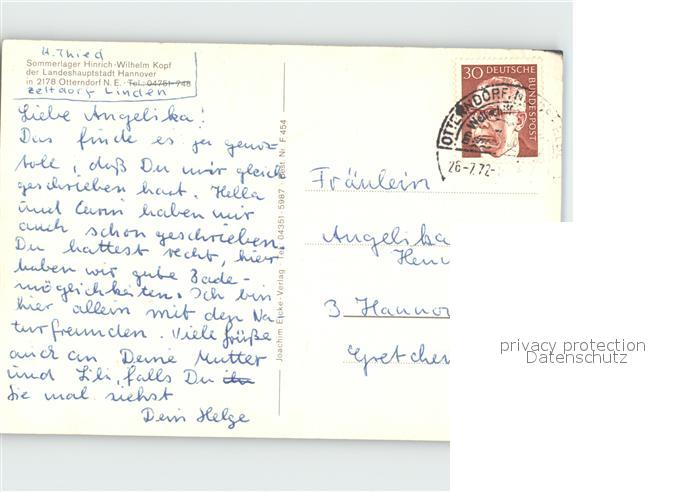 H. Thied
Sommerlager Hinrich-Wilhelm Kopf
der Landeshauptstadt Hannover
in 2178 Otterndorf N. E. · Tel.: 04751-748
Zeltdorf Linden
Liebe Angelika!
Das finde es ja ganz
toll, daß Du mir gleich
geschrieben hast. Hella
und Carin haben mir
auch schon geschrieben.
Du hattest recht, hier
haben wir gute Bade-
möglichkeiten. Ich bin
hier allein mit den Na
turfreunden. Viele Grüße
auch an Deine Mutter
und Lili, falls Du
Sie mal siehst
Dein Helge
Joachim Verlag Tel. 04351-5987 Best Nr. F 454
30 DEUTSCHE
BUNDESPOST
OTTERNDORF, N
26-7.72-
Fräulein
Angelika
Hen
3 Hanno
Gretchen
privacy protection
Datenschutz